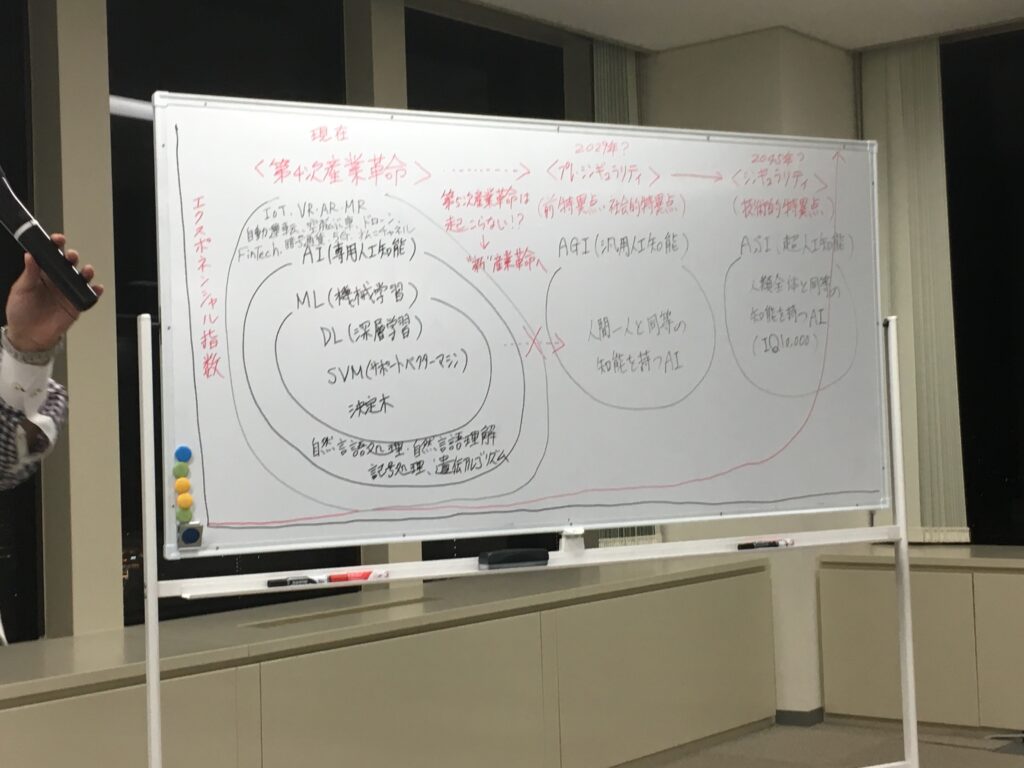 現在
<第4次産業革命>
IoT、VR・AR・MR
自動運転、空飛ぶ車、ドローン、
FinTech、暗号資産、5G、オムニチャネル
AI(専用人工知能)
ML(機械学習)
DL(深層学習)
SVM(サポートベクターマシン)
決定木
自然言語処理・自然言語理解
記号処理、遺伝アルゴリズム
エクスポネンシャル指数
第5次産業革命は
起こらない!?
↓
"新"産業革命へ
2029年?
<プレ・シンギュラリティ>
(前特異点・社会的特異点)
AGI(汎用人工知能)
人間一人と同等の
知能を持つAI
2045年?
<シンギュラリティ>
(技術的特異点)
ASI(超人工知能)
人類全体と同等の
知能を持つAI
(IQ10,000)